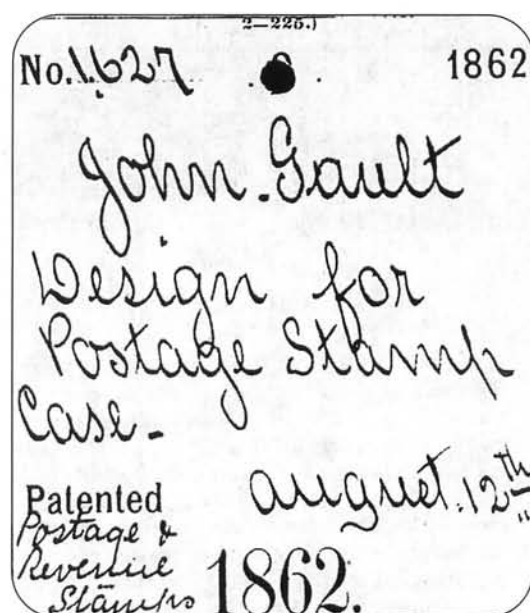 2—225.)
No. 1627 1862
John Gault
Design for
Postage Stamp
Case-
Patented august. 12th
Postage &
Revenue
Stamps 1862.